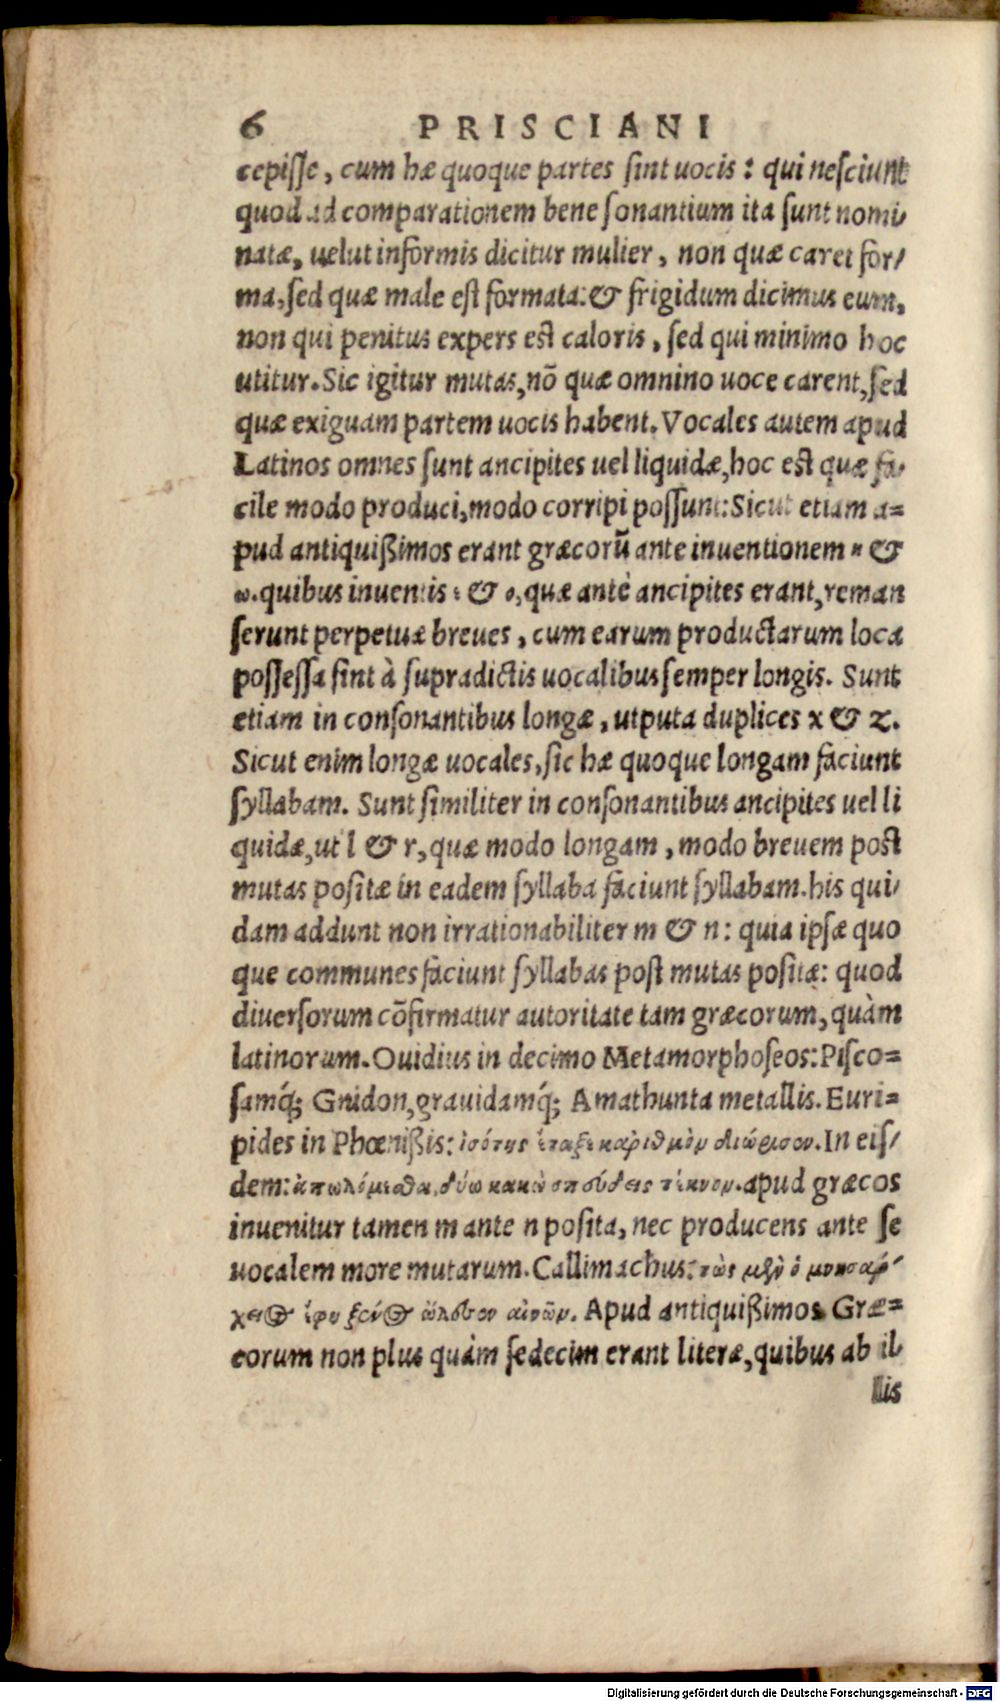 6 PRISCIANI
cepiſſe, cum hæ quoque partes ſint uocis: qui neſciunt
quod ad comparationem bene ſonantium ita ſunt nomi/
natæ, uelut informis dicitur mulier, non quæ caret for/
ma, ſed quæ male eſt formata: & frigidum dicimus eum,
non qui penitus expers eſt caloris, ſed qui minimo hoc
utitur. Sic igitur mutas, nō quæ omnino uoce carent, ſed
quæ exiguam partem uocis habent. Vocales autem apud
Latinos omnes ſunt ancipites uel liquidæ, hoc eſt quæ fa/
cile modo produci, modo corripi poſſunt: Sicut etiam a=
pud antiquißimos erant græcorū ante inuentionem η &
ω. quibus inuentis ε & ο, quæ antè ancipites erant, reman
ſerunt perpetuæ breues, cum earum productarum loca
poſſeſſa ſint à ſupradictis uocalibus ſemper longis. Sunt
etiam in conſonantibus longæ, utputa duplices x & z.
Sicut enim longæ uocales, ſic hæ quoque longam faciunt
ſyllabam. Sunt ſimiliter in conſonantibus ancipites uel li
quidæ, ut l & r, quæ modo longam, modo breuem poſt
mutas poſitæ in eadem ſyllaba faciunt ſyllabam. his qui/
dam addunt non irrationabiliter m & n: quia ipſæ quo
que communes faciunt ſyllabas poſt mutas poſitæ: quod
diuerſorum cōfirmatur autoritate tam græcorum, quàm
latinorum. Ouidius in decimo Metamorphoſeos: Piſco=
ſamq́; Gnidon, grauidamq́; Amathunta metallis. Euri=
pides in Phœnißis: ἰσότης ἔταξε καριθμὸν διώρισον. In eiſ/
dem: ἀπωλόμεσθα. δύω κακὼ σπεύδεις τέκνον. apud græcos
inuenitur tamen m ante n poſita, nec producens ante ſe
uocalem more mutarum. Callimachus: τὼς μὲν ὁ μνησάρ/
χειος ἔφυ ξεῖνος ὧδε συναινῶ. Apud antiquißimos Græ=
corum non plus quàm ſedecim erant literæ, quibus ab il/
lis
Digitalisierung gefördert durch die Deutsche Forschungsgemeinschaft - DFG